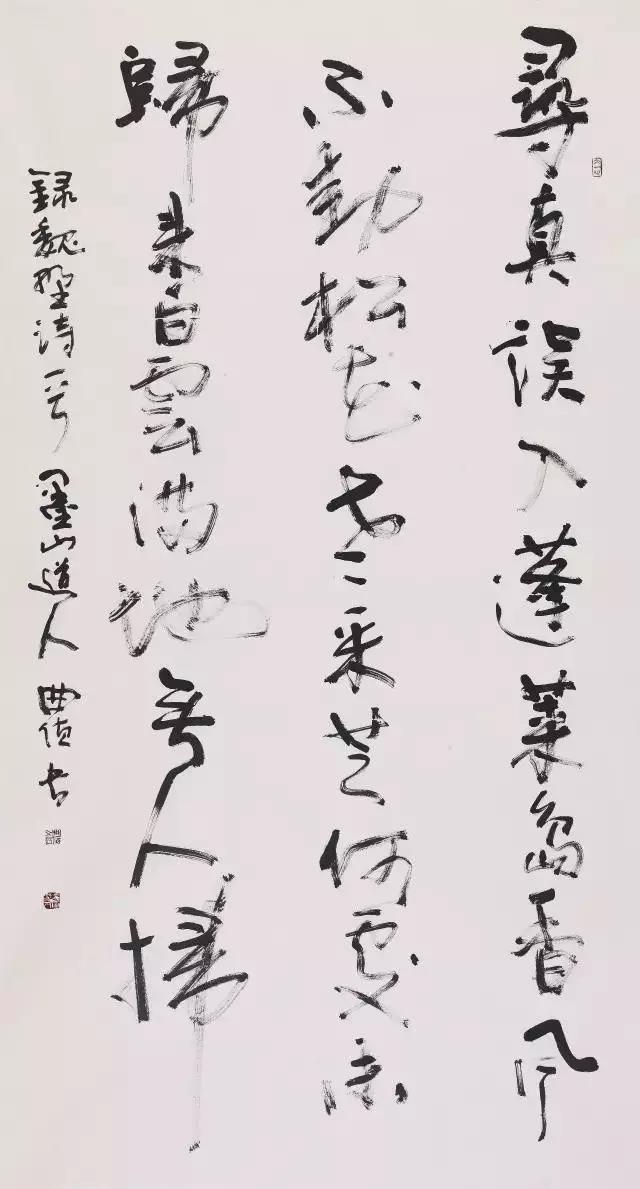 尋真誤入蓬萊島香風
不動松花老采芝何處未
歸來白雲滿地無人掃
録魏野詩一首 墨山道人 曲书